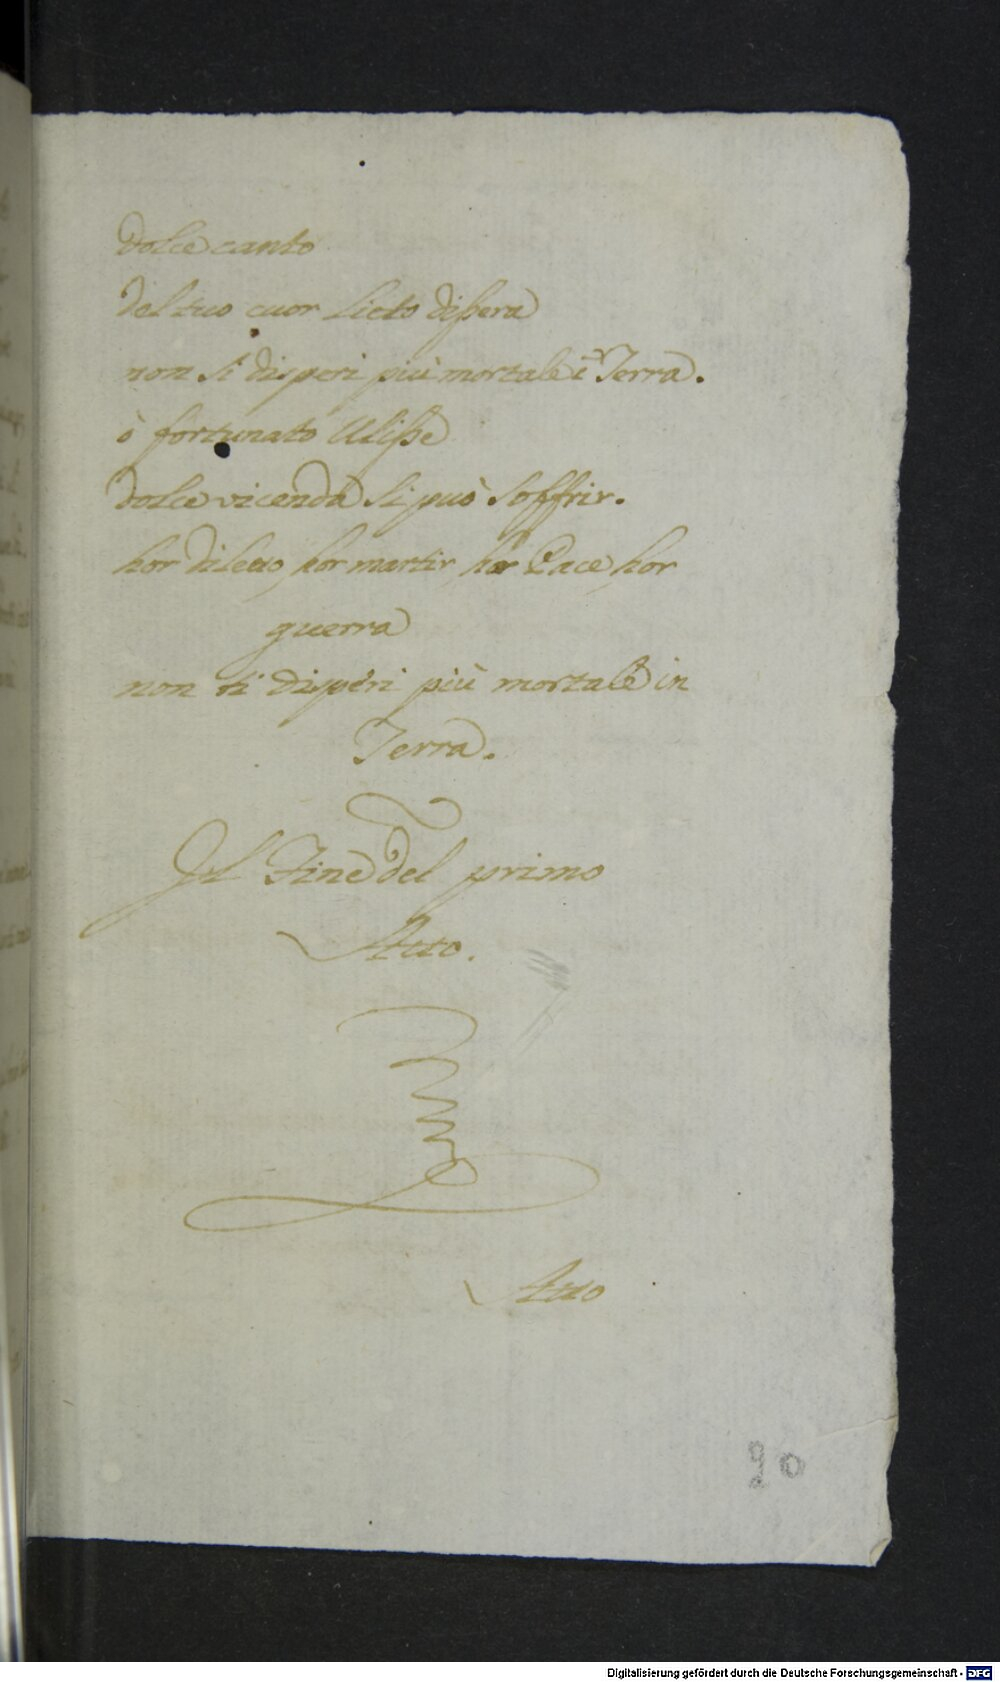 dolce canto
del tuo cuor lieto dissera
non si disperi più mortale ĩ Terra.
ò fortunato Ulisse
dolce vicenda si può soffrir.
hor diletto, hor martir, hor Pace, hor
guerra
non si disperi più mortale in
Terra.
Il Fine del primo
Atto.
Atto
20
Digitalisierung gefördert durch die Deutsche Forschungsgemeinschaft - DFG